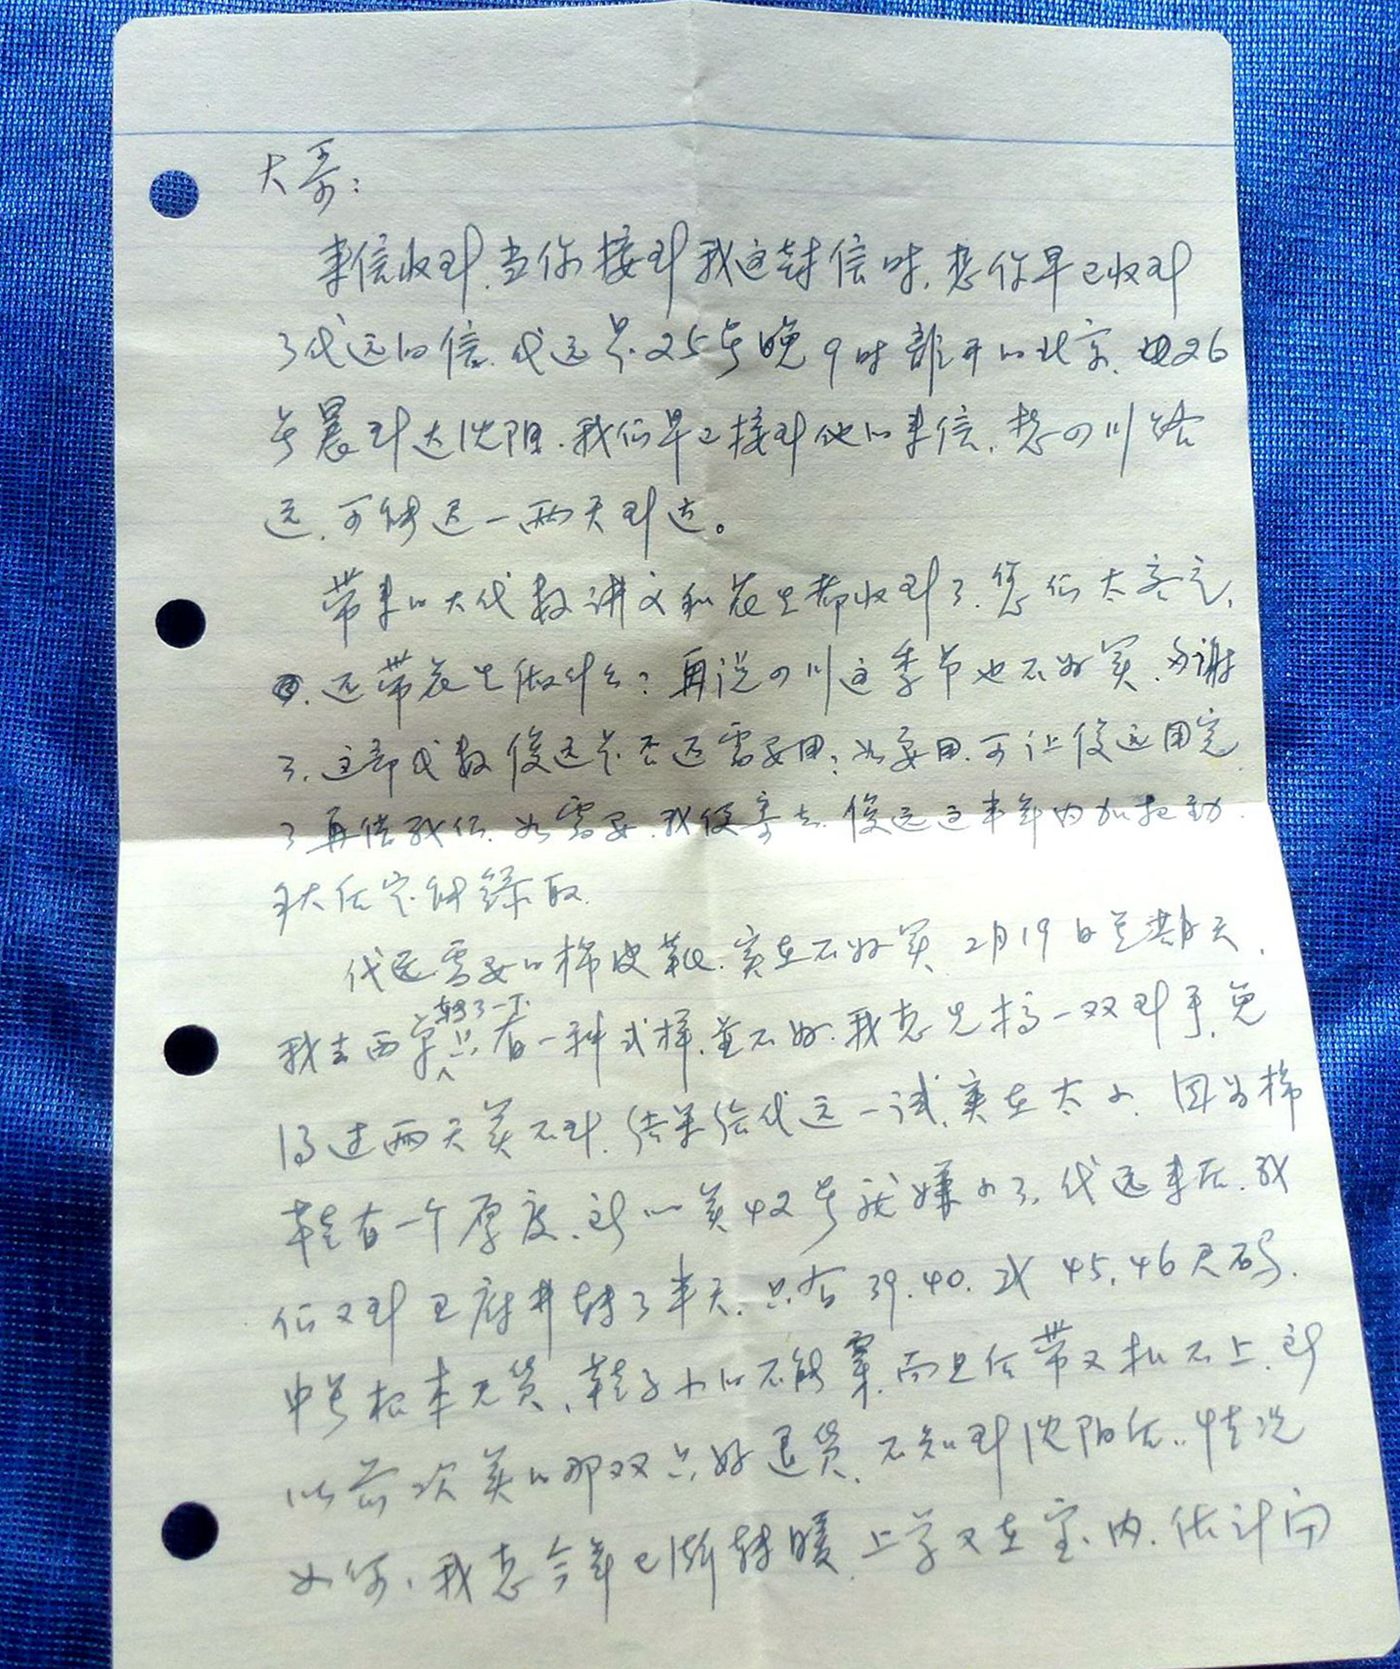 大哥：
来信收到，当你接到我这封信时，想你早已收到
了代远的信，代远是25号晚9时离开的北京，26
号晨到达沈阳，我们早已接到他的来信，想四川路
远，可能迟一两天到达。
带来的大代数讲义和花生都收到了，您们太客气，
还带花生做什么？再说四川这季节也不好买，多谢
了，这部代数俊远是否还需要用？如要用，可让俊远用完
了再借我们，如需要，我便寄去，俊远这半年内加把劲，
估定能录取
代远需要的棉皮靴，实在不好买，2月19日星期天，
我去西单转了一下，只有一种式样，并不好，我想先搞一双到手，免
得过两天买不到，结果给代远一试，实在太小，因为棉
鞋有一个厚度，所以买42号就嫌小了，代远来后，我
们又到王府井转了半天，只有39.40.或45.46尺码，
中号根本无货，鞋子小的不能穿，而且后带又扣不上，所
以前次买的那双只好退货，不知到沈阳后，情况
如何，我想今年已渐转暖，上学又在室内，估计问